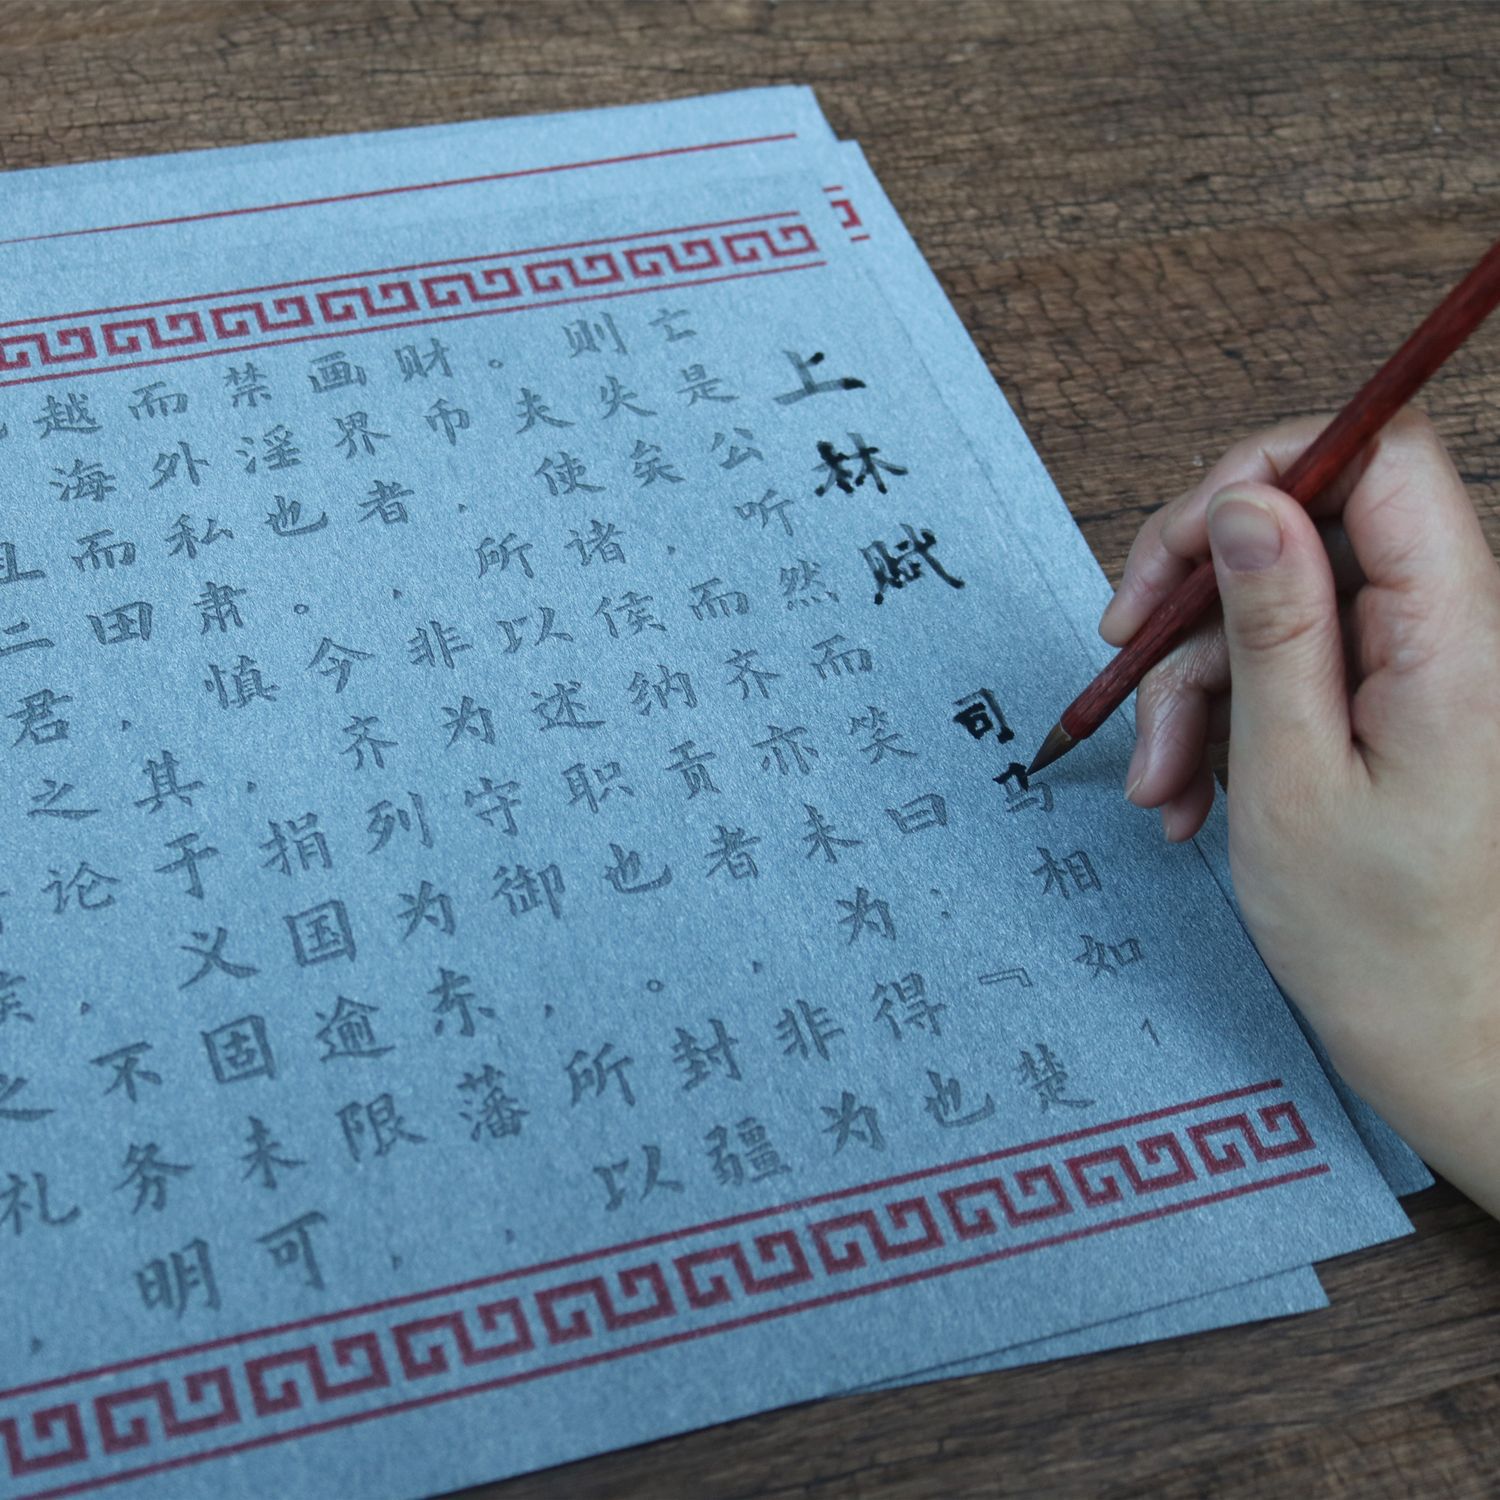 上林赋
司马相如
1
亡是公听然而笑曰：『楚
则失矣，而齐亦未为得也
。夫使诸侯纳贡者，非为
财币，所以述职也。封疆
画界者，非为守御，所以
禁淫也。今齐列为东藩，
而外私肃慎，捐国逾限，
越海而田，其于义固未可
且二君之论，不务明
侯之礼，